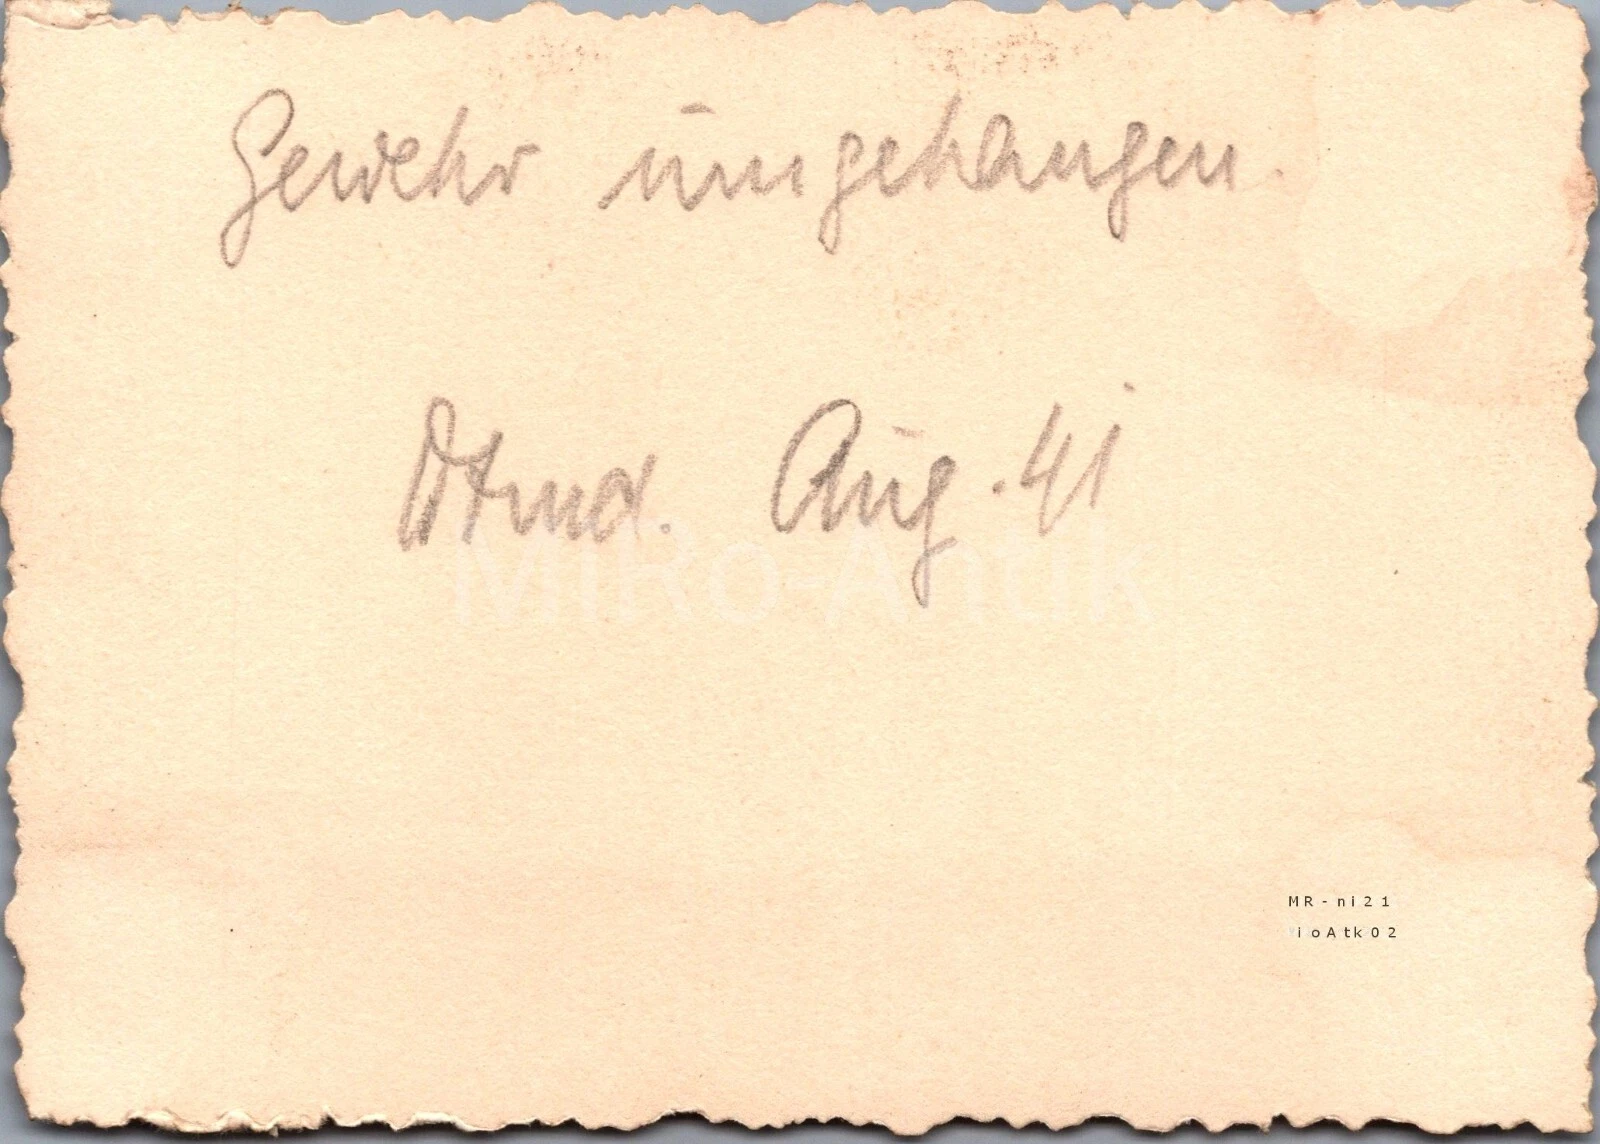 Gewehr umgehangen.
Dtmd. Aug. 41
MiRo-Antik
MR-ni21
ioAtk02